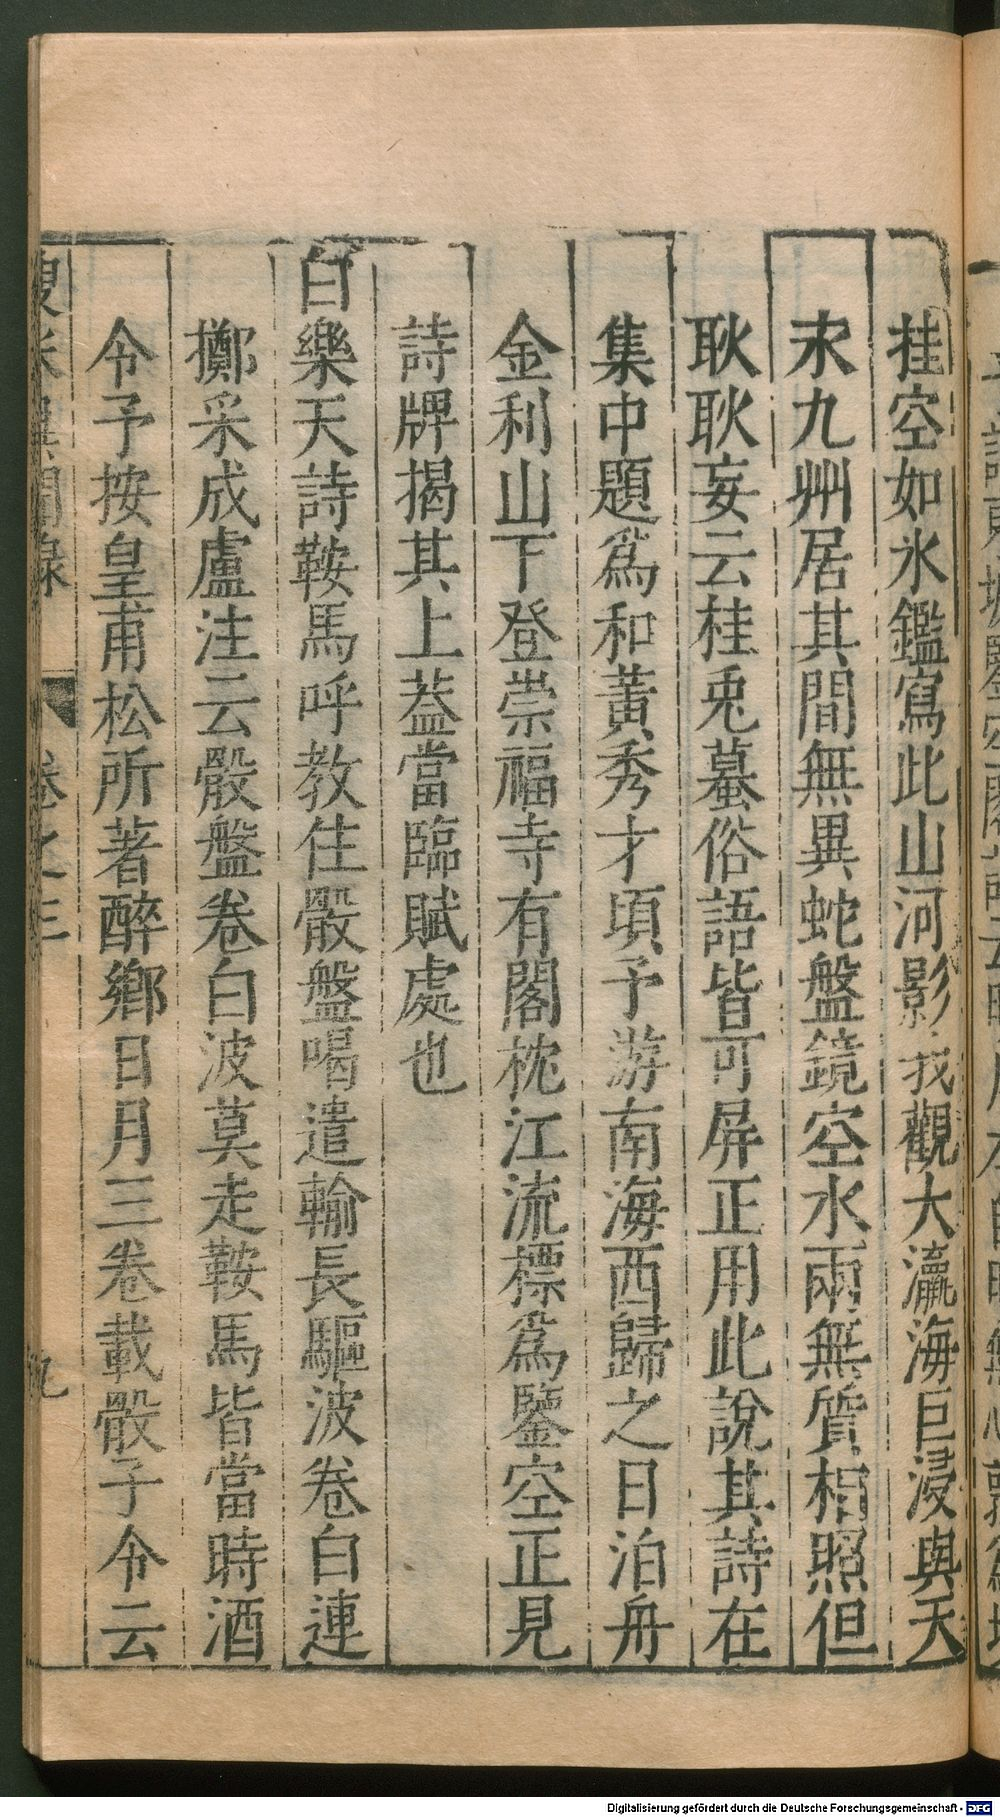 挂空如水鑑寫此山河影我觀大瀛海巨浸與天
永九州居其間無異蛇盤鏡空水兩無質相照但
耿耿妄云桂兎蟇俗語皆可屏正用此說其詩在
集中題爲和黃秀才頃予游南海西歸之日泊舟
金利山下登崇福寺有閣枕江流標爲鑒空正見
詩牌揭其上葢當臨賦處也
白樂天詩鞍馬呼教住骰盤喝遣輸長驅波卷白連
擲采成盧注云骰盤卷白波莫走鞍馬皆當時酒
令予按皇甫松所著醉鄉日月三卷載骰子令云
異聞錄 卷之三 九
Digitalisierung gefördert durch die Deutsche Forschungsgemeinschaft - DFG